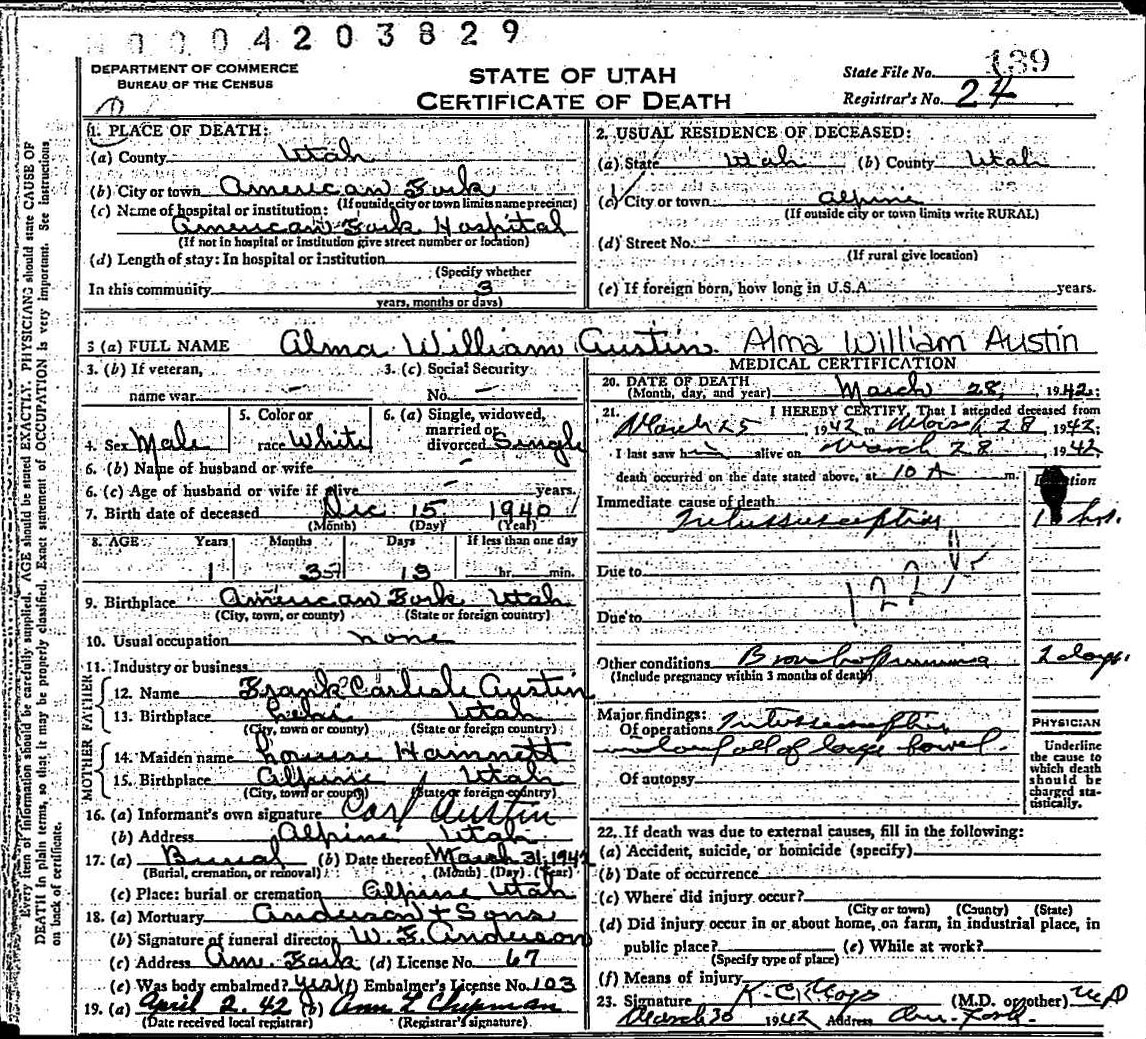 0004203829
DEPARTMENT OF COMMERCE
BUREAU OF THE CENSUS
STATE OF UTAH
CERTIFICATE OF DEATH
State File No. 139
Registrar's No. 24
1. PLACE OF DEATH:
(a) County Utah
(b) City or town American Fork
(If outside city or town limits name precinct)
(c) Name of hospital or institution:
American Fork Hospital
(If not in hospital or institution give street number or location)
(d) Length of stay: In hospital or institution
(Specify whether
In this community 3
years, months or days)
2. USUAL RESIDENCE OF DECEASED:
(a) State Utah (b) County Utah
(c) City or town Alpine
(If outside city or town limits write RURAL)
(d) Street No.
(If rural give location)
(e) If foreign born, how long in U.S.A. years.
3 (a) FULL NAME Alma William Austin Alma William Austin
3. (b) If veteran,
name war –
3. (c) Social Security
No. –
4. Sex Male
5. Color or
race White
6. (a) Single, widowed,
married or
divorced Single
6. (b) Name of husband or wife –
6. (c) Age of husband or wife if alive – years.
7. Birth date of deceased Dec 15 1940
(Month) (Day) (Year)
8. AGE Years Months Days If less than one day
1 3 13 hr. min.
9. Birthplace American Fork Utah
(City, town, or county) (State or foreign country)
10. Usual occupation none
11. Industry or business
FATHER
12. Name Frank Carlisle Austin
13. Birthplace Lehi Utah
(City, town or county) (State or foreign country)
MOTHER
14. Maiden name Louise Hamnett
15. Birthplace Alpine Utah
(City, town or county) (State or foreign country)
16. (a) Informant's own signature Carl Austin
(b) Address Alpine Utah
17. (a) Burial (b) Date thereof March 31, 1942
(Burial, cremation, or removal) (Month) (Day) (Year)
(c) Place: burial or cremation Alpine Utah
18. (a) Mortuary Anderson + Sons
(b) Signature of funeral director W. E. Anderson
(c) Address Am. Fork (d) License No. 67
(e) Was body embalmed? yes (f) Embalmer's License No. 103
19. (a) April 2. 42 (b) Ann L Chipman
(Date received local registrar) (Registrar's signature)
MEDICAL CERTIFICATION
20. DATE OF DEATH
(Month, day, and year) March 28, 1942
21. I HEREBY CERTIFY, That I attended deceased from
March 25, 1942 to March 28, 1942;
I last saw him alive on March 28, 1942
death occurred on the date stated above, at 10 A m.
Immediate cause of death
Intussusception hrs.
Due to
Due to
Other conditions Bronchopneumonia 2 days.
(Include pregnancy within 3 months of death)
Major findings:
Of operations Intussusception
of large bowel.
Of autopsy
PHYSICIAN
Underline
the cause to
which death
should be
charged sta-
tistically.
22. If death was due to external causes, fill in the following:
(a) Accident, suicide, or homicide (specify)
(b) Date of occurrence
(c) Where did injury occur?
(City or town) (County) (State)
(d) Did injury occur in or about home, on farm, in industrial place, in
public place? (e) While at work?
(Specify type of place)
(f) Means of injury
23. Signature (M.D. or other) MD
March 30 1942 Address Am. Fork
Every item of information should be carefully supplied. AGE should be stated EXACTLY. PHYSICIANS should state CAUSE OF
DEATH in plain terms, so that it may be properly classified. Exact statement of OCCUPATION is very important. See Instructions
on back of certificate.